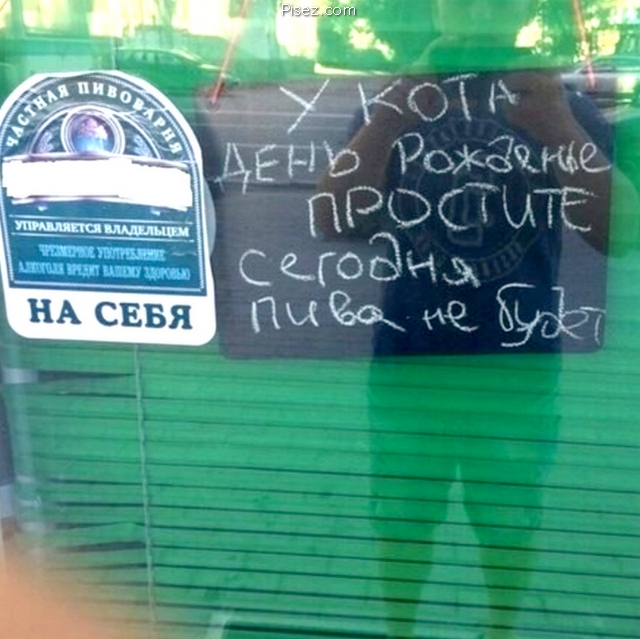 Pisez.com
ЧАСТНАЯ ПИВОВАРНЯ
УПРАВЛЯЕТСЯ ВЛАДЕЛЬЦЕМ
ЧРЕЗМЕРНОЕ УПОТРЕБЛЕНИЕ
АЛКОГОЛЯ ВРЕДИТ ВАШЕМУ ЗДОРОВЬЮ
НА СЕБЯ
У КОТА
ДЕНЬ Рожденье
ПРОСТИТЕ
сегодня
пива не будет